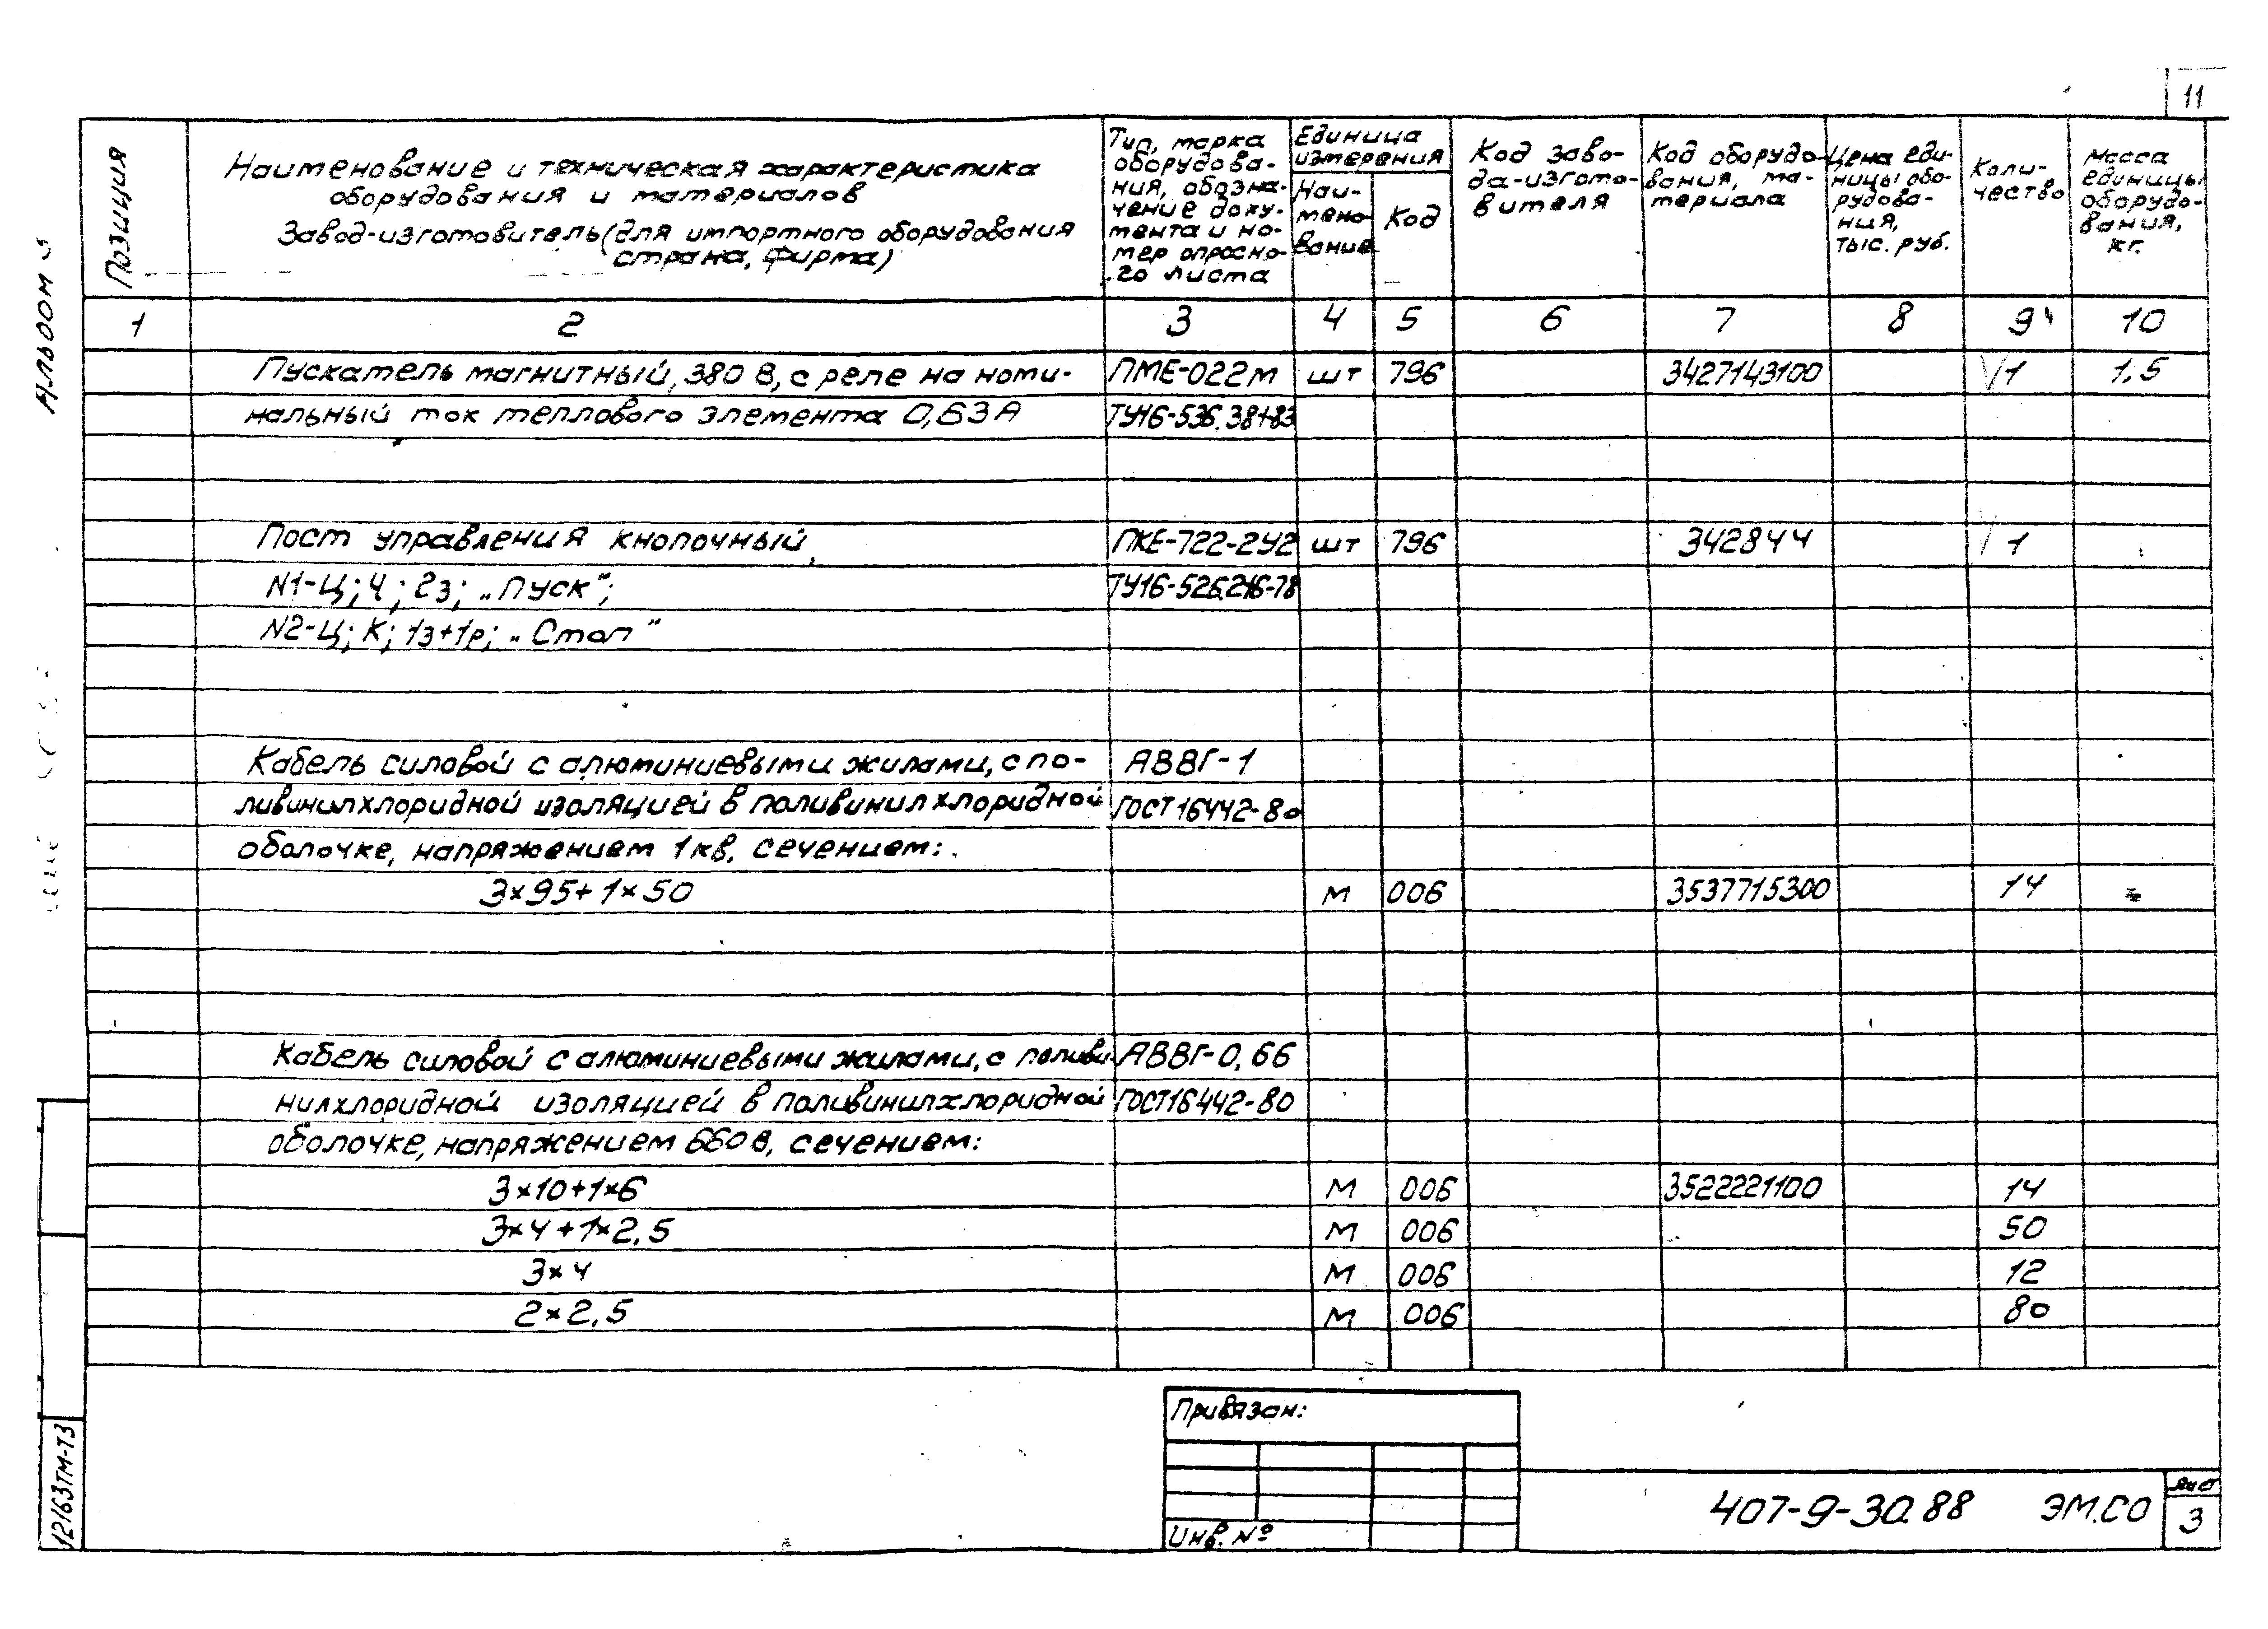 11
Альбом
Позиция
Наименование и техническая характеристика
оборудования и материалов
Завод-изготовитель (для импортного оборудования
страна, фирма)
Тип, марка
оборудова-
ния, обозна-
чение доку-
мента и но-
мер опросно-
го листа
Единица
измерения
Наи-
мено-
вание
Код
Код заво-
да-изгото-
вителя
Код оборудо-
вания, ма-
териала
Цена еди-
ницы обо-
рудова-
ния,
тыс. руб.
Коли-
чество
Масса
единицы
оборудо-
вания,
кг.
1 2 3 4 5 6 7 8 9 10
Пускатель магнитный, 380 В, с реле на номи- ПМЕ-022М шт 796 3427143100 1 1,5
нальный ток теплового элемента 0,63А
Пост управления кнопочный, ПКЕ-722-2У2 шт 796 342844 1
N1-Ц; Ч; 2з; „Пуск“; ТУ16-526.216-78
N2-Ц; К; 1з+1р; „Стоп“
Кабель силовой с алюминиевыми жилами, с по- АВВГ-1
ливинилхлоридной изоляцией в поливинилхлоридной ГОСТ 16442-80
оболочке, напряжением 1кв, сечением:
3×95+1×50 м 006 3537715300 14
Кабель силовой с алюминиевыми жилами, с поливи- АВВГ-0,66
нилхлоридной изоляцией в поливинилхлоридной ГОСТ16442-80
оболочке, напряжением 660В, сечением:
3×10+1×6 м 006 3522221100 14
3×4+1×2,5 м 006 50
3×4 м 006 12
2×2,5 м 006 80
Привязан:
Инв. №
12163ТМ-Т3
407-9-30.88 ЭМ.СО
Лист
3